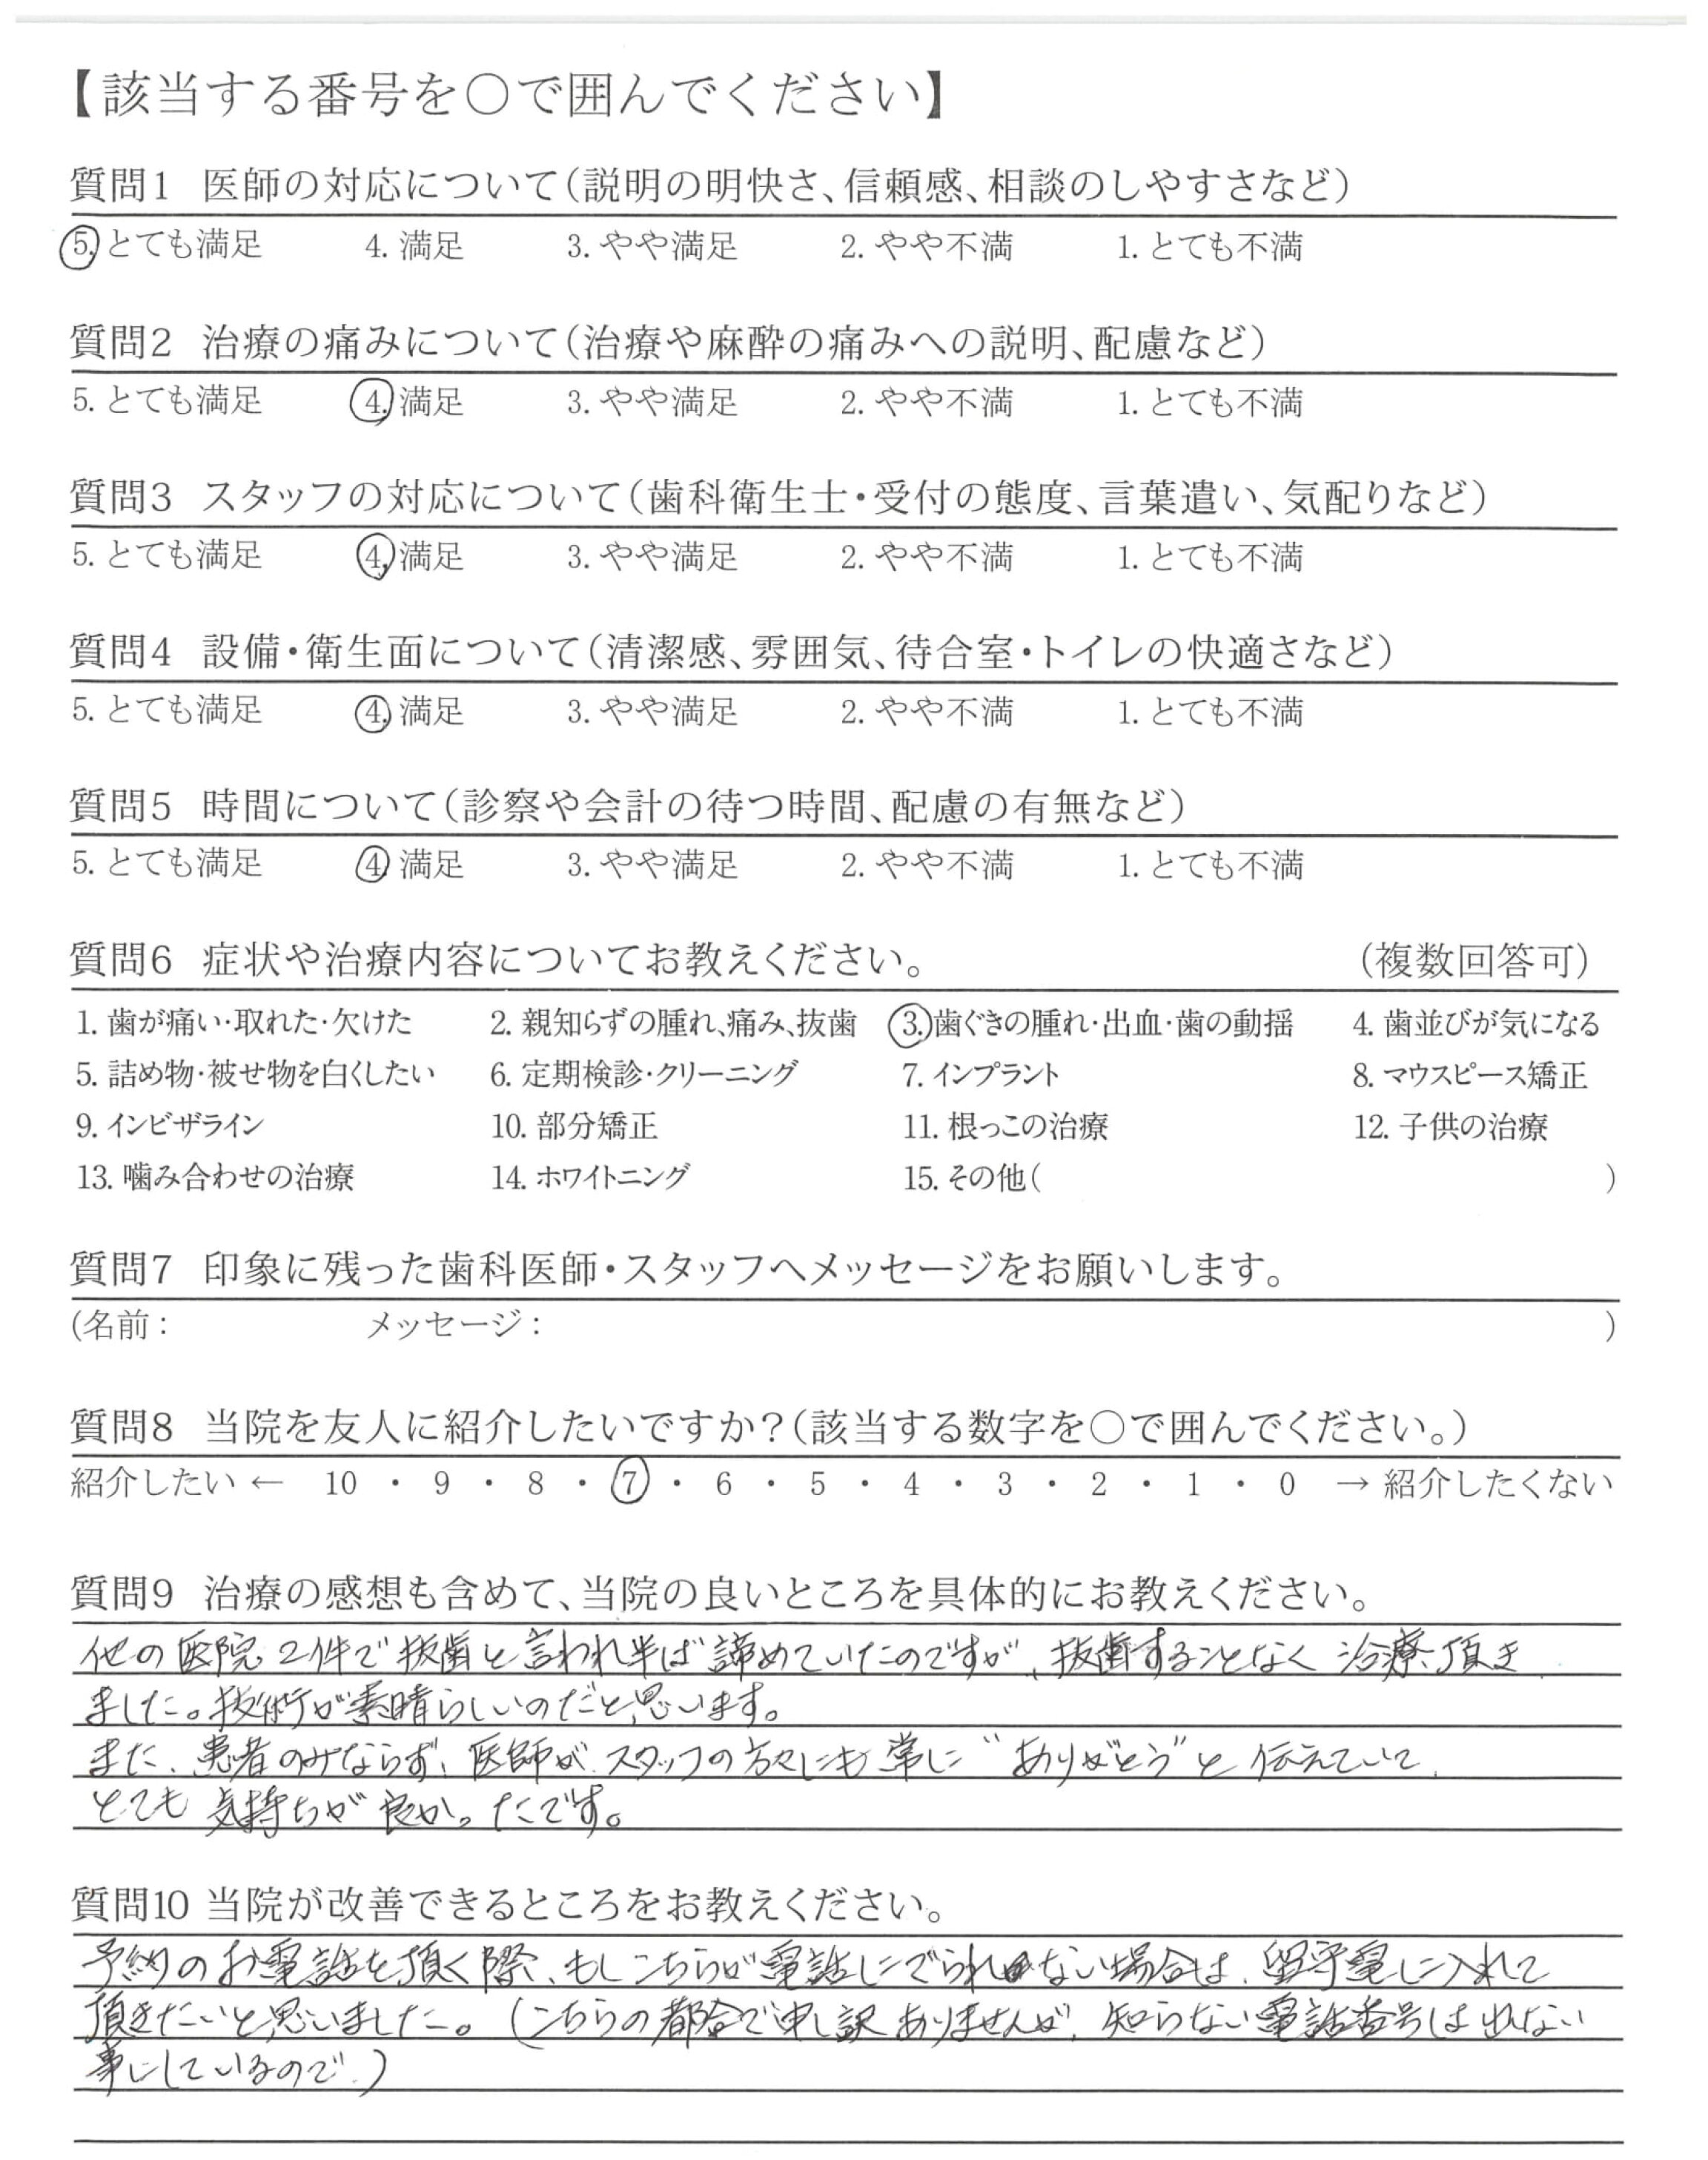 【該当する番号を○で囲んでください】
質問1 医師の対応について(説明の明快さ、信頼感、相談のしやすさなど)
5. とても満足 4. 満足 3. やや満足 2. やや不満 1. とても不満
質問2 治療の痛みについて(治療や麻酔の痛みへの説明、配慮など)
5. とても満足 4. 満足 3. やや満足 2. やや不満 1. とても不満
質問3 スタッフの対応について(歯科衛生士・受付の態度、言葉遣い、気配りなど)
5. とても満足 4. 満足 3. やや満足 2. やや不満 1. とても不満
質問4 設備・衛生面について(清潔感、雰囲気、待合室・トイレの快適さなど)
5. とても満足 4. 満足 3. やや満足 2. やや不満 1. とても不満
質問5 時間について(診察や会計の待つ時間、配慮の有無など)
5. とても満足 4. 満足 3. やや満足 2. やや不満 1. とても不満
質問6 症状や治療内容についてお教えください。 (複数回答可)
1. 歯が痛い・取れた・欠けた 2. 親知らずの腫れ、痛み、抜歯 3. 歯ぐきの腫れ・出血・歯の動揺 4. 歯並びが気になる
5. 詰め物・被せ物を白くしたい 6. 定期検診・クリーニング 7. インプラント 8. マウスピース矯正
9. インビザライン 10. 部分矯正 11. 根っこの治療 12. 子供の治療
13. 噛み合わせの治療 14. ホワイトニング 15. その他( )
質問7 印象に残った歯科医師・スタッフへメッセージをお願いします。
(名前: メッセージ: )
質問8 当院を友人に紹介したいですか?(該当する数字を○で囲んでください。)
紹介したい ← 10 ・ 9 ・ 8 ・ 7 ・ 6 ・ 5 ・ 4 ・ 3 ・ 2 ・ 1 ・ 0 → 紹介したくない
質問9 治療の感想も含めて、当院の良いところを具体的にお教えください。
他の医院2件で抜歯と言われ半ば諦めていたのですが、抜歯することなく治療頂き
ました。技術が素晴らしいのだと思います。
また、患者のみならず、医師がスタッフの方々にも常に"ありがとう"と伝えていて、
とても気持ちが良かったです。
質問10 当院が改善できるところをお教えください。
予約のお電話を頂く際、もしこちらが電話にでられない場合は、留守電に入れて
頂きたいと思いました。(こちらの都合で申し訳ありませんが、知らない電話番号は出ない
事にしているので)